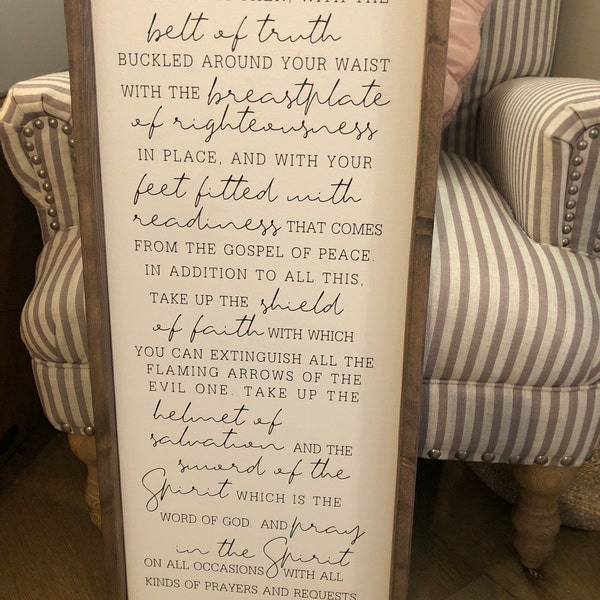 THEN, WITH THE
belt of truth
BUCKLED AROUND YOUR WAIST
WITH THE breastplate
of righteousness
IN PLACE, AND WITH YOUR
feet fitted with
readiness THAT COMES
FROM THE GOSPEL OF PEACE.
IN ADDITION TO ALL THIS,
TAKE UP THE shield
of faith WITH WHICH
YOU CAN EXTINGUISH ALL THE
FLAMING ARROWS OF THE
EVIL ONE. TAKE UP THE
helmet of
salvation AND THE
sword of the
Spirit WHICH IS THE
WORD OF GOD. AND pray
in the Spirit
ON ALL OCCASIONS WITH ALL
KINDS OF PRAYERS AND REQUESTS